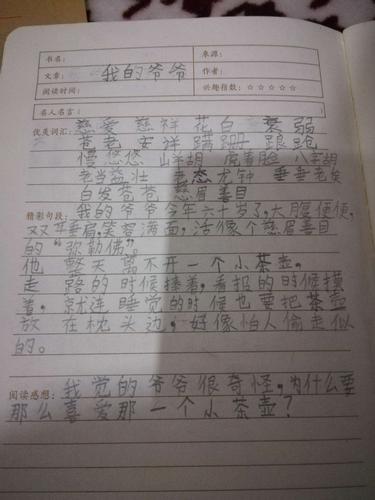 书名： 来源：
文章： 我的爷爷 作者：
阅读时间： 兴趣指数：☆☆☆☆☆
名人名言：
优美词汇： 慈爱 慈祥 花白 衰弱
苍老 安详 蹒跚 踉跄
慢悠悠 山羊胡 虎着脸 八字胡
老当益壮 老态龙钟 垂垂老矣
白发苍苍 慈眉善目
精彩句段： 我的爷爷今年六十岁了,大腹便便,
双耳垂肩,笑容满面,活像个慈眉善目
的“弥勒佛”。
他整天离不开一个小茶壶,
走路的时候捧着,看报的时候摸
着,就连睡觉的时候也要把茶壶
放在枕头边,好像怕人偷走似
的。
阅读感想： 我觉的爷爷很奇怪,为什么要
那么喜爱那一个小茶壶?